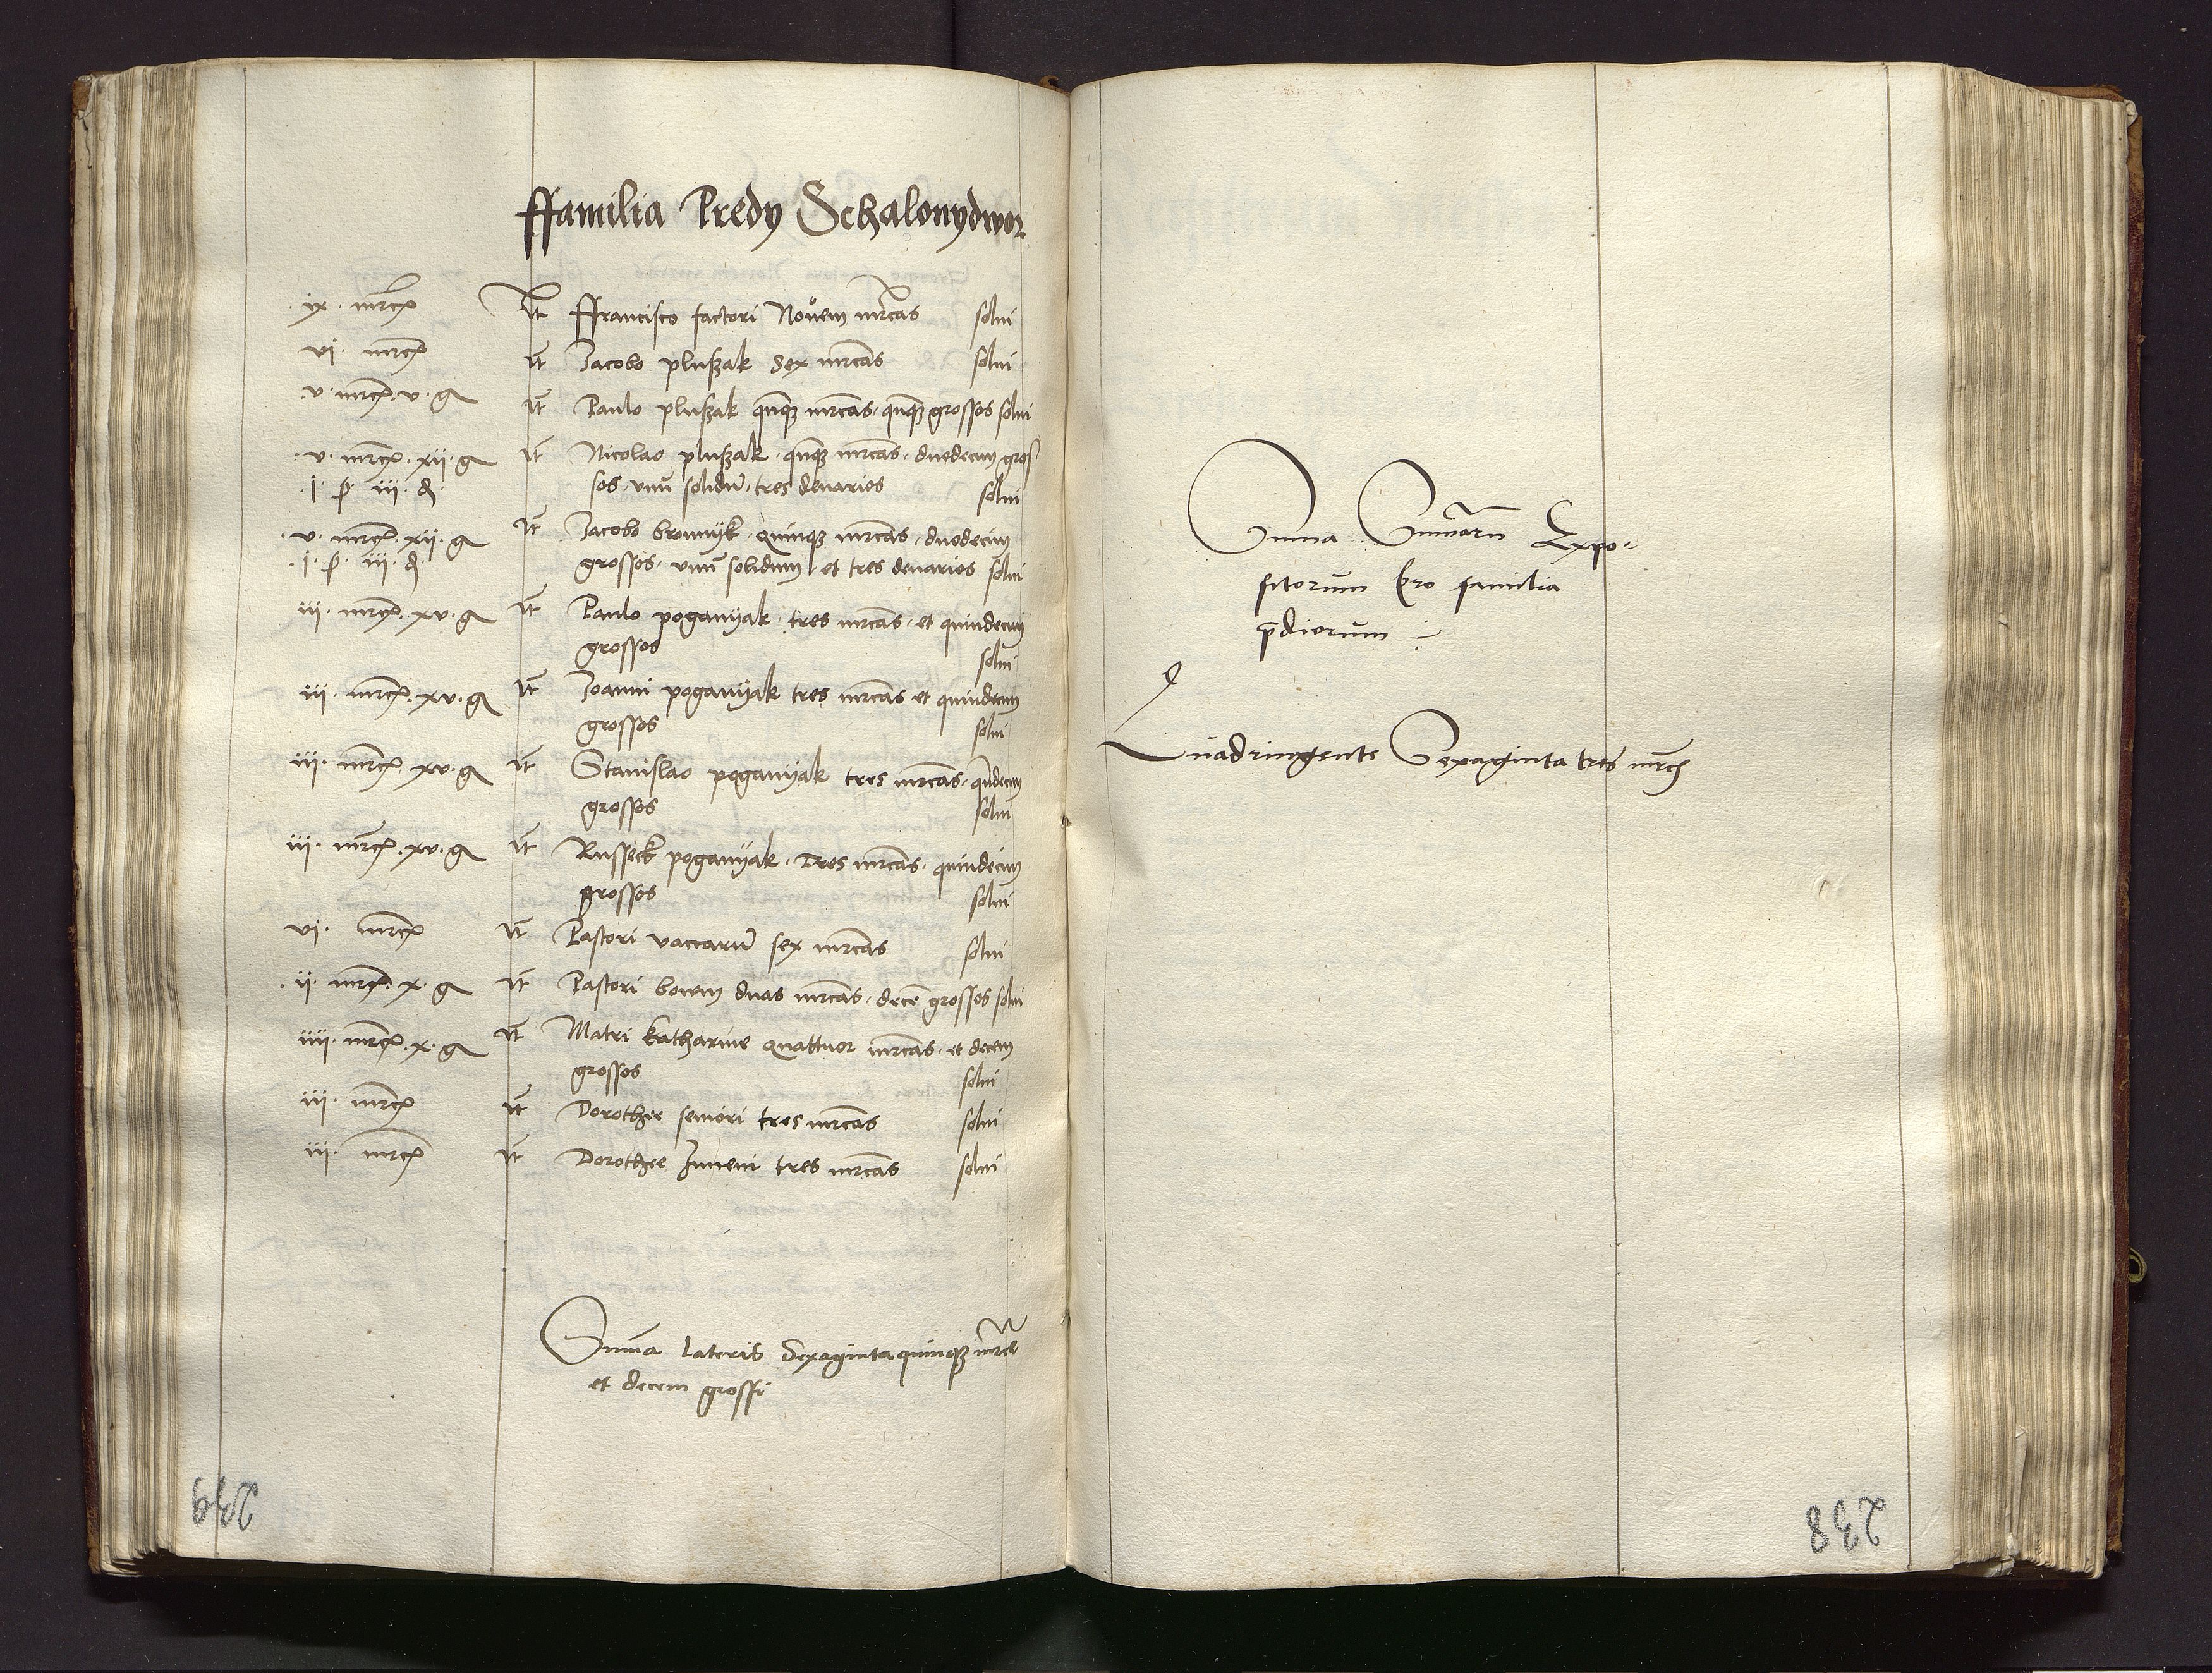 ffamilia Predy Schalonydwor
ix mrcx It ffrancisco factori Nouem mrcas solui
vi mrcx It Jacobo plusßak Sex mrcas solui
v mrcx v g It Paulo plusßak quqz mrcas quqz grossos solui
v mrcx xii g It Nicolao plusßak quqz mrcas duodecim gros
i ß iii d sos vnu solidu tres denarios solui
v mrcx xii g It Jacobo bronnyk quinqz mrcas duodecim
i ß iii d grossos vnu solidum et tres denarios solui
iii mrcx xv g It Paulo poganyak tres mrcas et quindecim
grossos solui
iii mrcx xv g It Joanni poganyak tres mrcas et quindecim
grossos solui
iii mrcx xv g It Stanislao poganyak tres mrcas qndecim
grossos solui
iii mrcx xv g It Russeck poganyak Tres mrcas quindecim
grossos solui
vi mrcx It Pastori vaccaru sex mrcas solui
ii mrcx x g It Pastori bowm duas mrcas dece grossos solui
iiii mrcx x g It Matri katharine quattuor mrcas et decem
grossos solui
iii mrcx It Dorothee seniori tres mrcas solui
iii mrcx It Dorothee Juueni tres mrcas solui
Suma lateris Sexaginta quinqz mrce
et decem grossi
239
Suma Sumaru Expo-
sitorum pro familia
pdiorum
Quadringente Sexaginta tres mrce
238